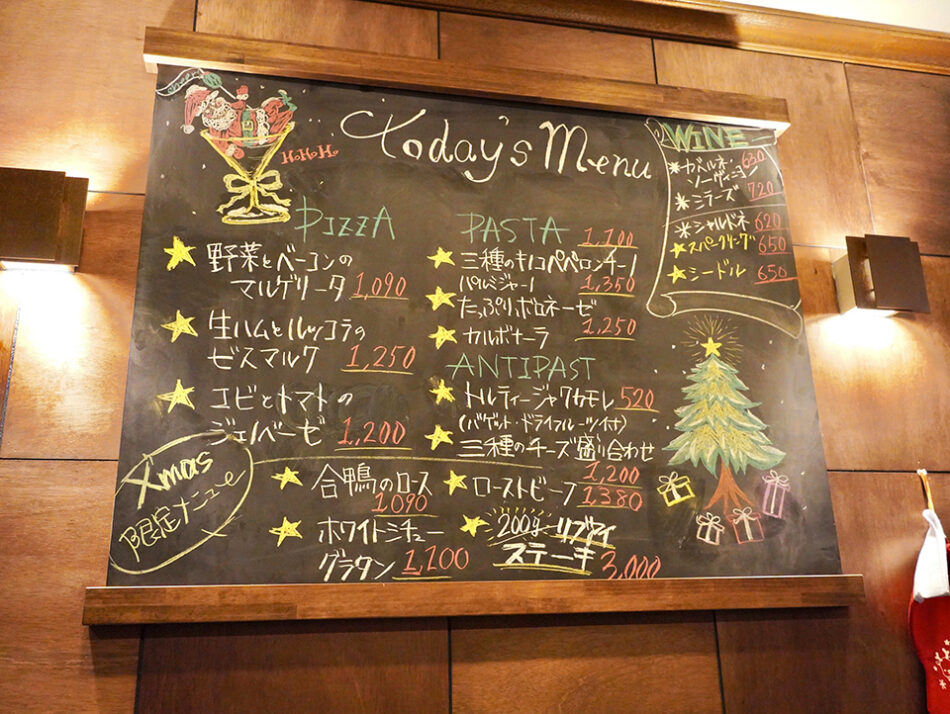 Today's Menu
HoHoHo
PIZZA
野菜とベーコンの
マルゲリータ 1,090
生ハムとルッコラの
ビスマルク 1,250
エビとトマトの
ジェノベーゼ 1,200
PASTA
1,100
三種のキノコペペロンチーノ
パルミジャーノ 1,350
たっぷりボロネーゼ
カルボナーラ 1,250
ANTIPAST
トルティージャワカモレ 520
(バゲット・ドライフルーツ付)
三種のチーズ盛り合わせ
1,200
WINE
カベルネ・
ソーヴィニヨン 630
シラーズ 720
シャルドネ 620
スパークリング 650
シードル 650
Xmas
限定メニュー
合鴨のロース
1090
ホワイトシチュー
グラタン 1,100
ローストビーフ 1380
200g リブアイ
ステーキ 3,000